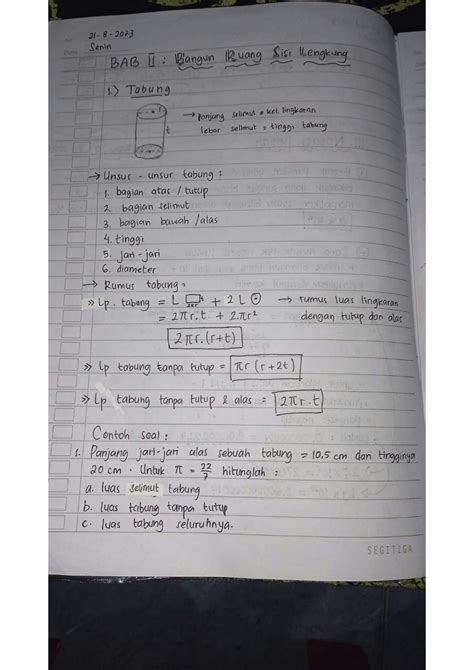 21-8-2023
Senin
BAB II : Bangun Ruang Sisi Lengkung
1.) Tabung
→ Panjang selimut = kel. lingkaran
lebar selimut = tinggi tabung
t
→ Unsur - unsur tabung :
1. bagian atas / tutup
2. bagian selimut
3. bagian bawah / alas
4. tinggi
5. jari-jari
6. diameter
→ Rumus tabung :
» Lp. tabung = L + 2 L → rumus luas lingkaran
= 2πr.t + 2.πr² dengan tutup dan alas
2πr.(r+t)
» Lp tabung tanpa tutup = πr (r+2t)
» Lp tabung tanpa tutup & alas = 2πr.t
Contoh soal :
1. Panjang jari-jari alas sebuah tabung = 10,5 cm dan tingginya
20 cm. Untuk π = 22/7 hitunglah :
a. luas selimut tabung
b. luas tabung tanpa tutup
c. luas tabung seluruhnya.
SEGITIGA